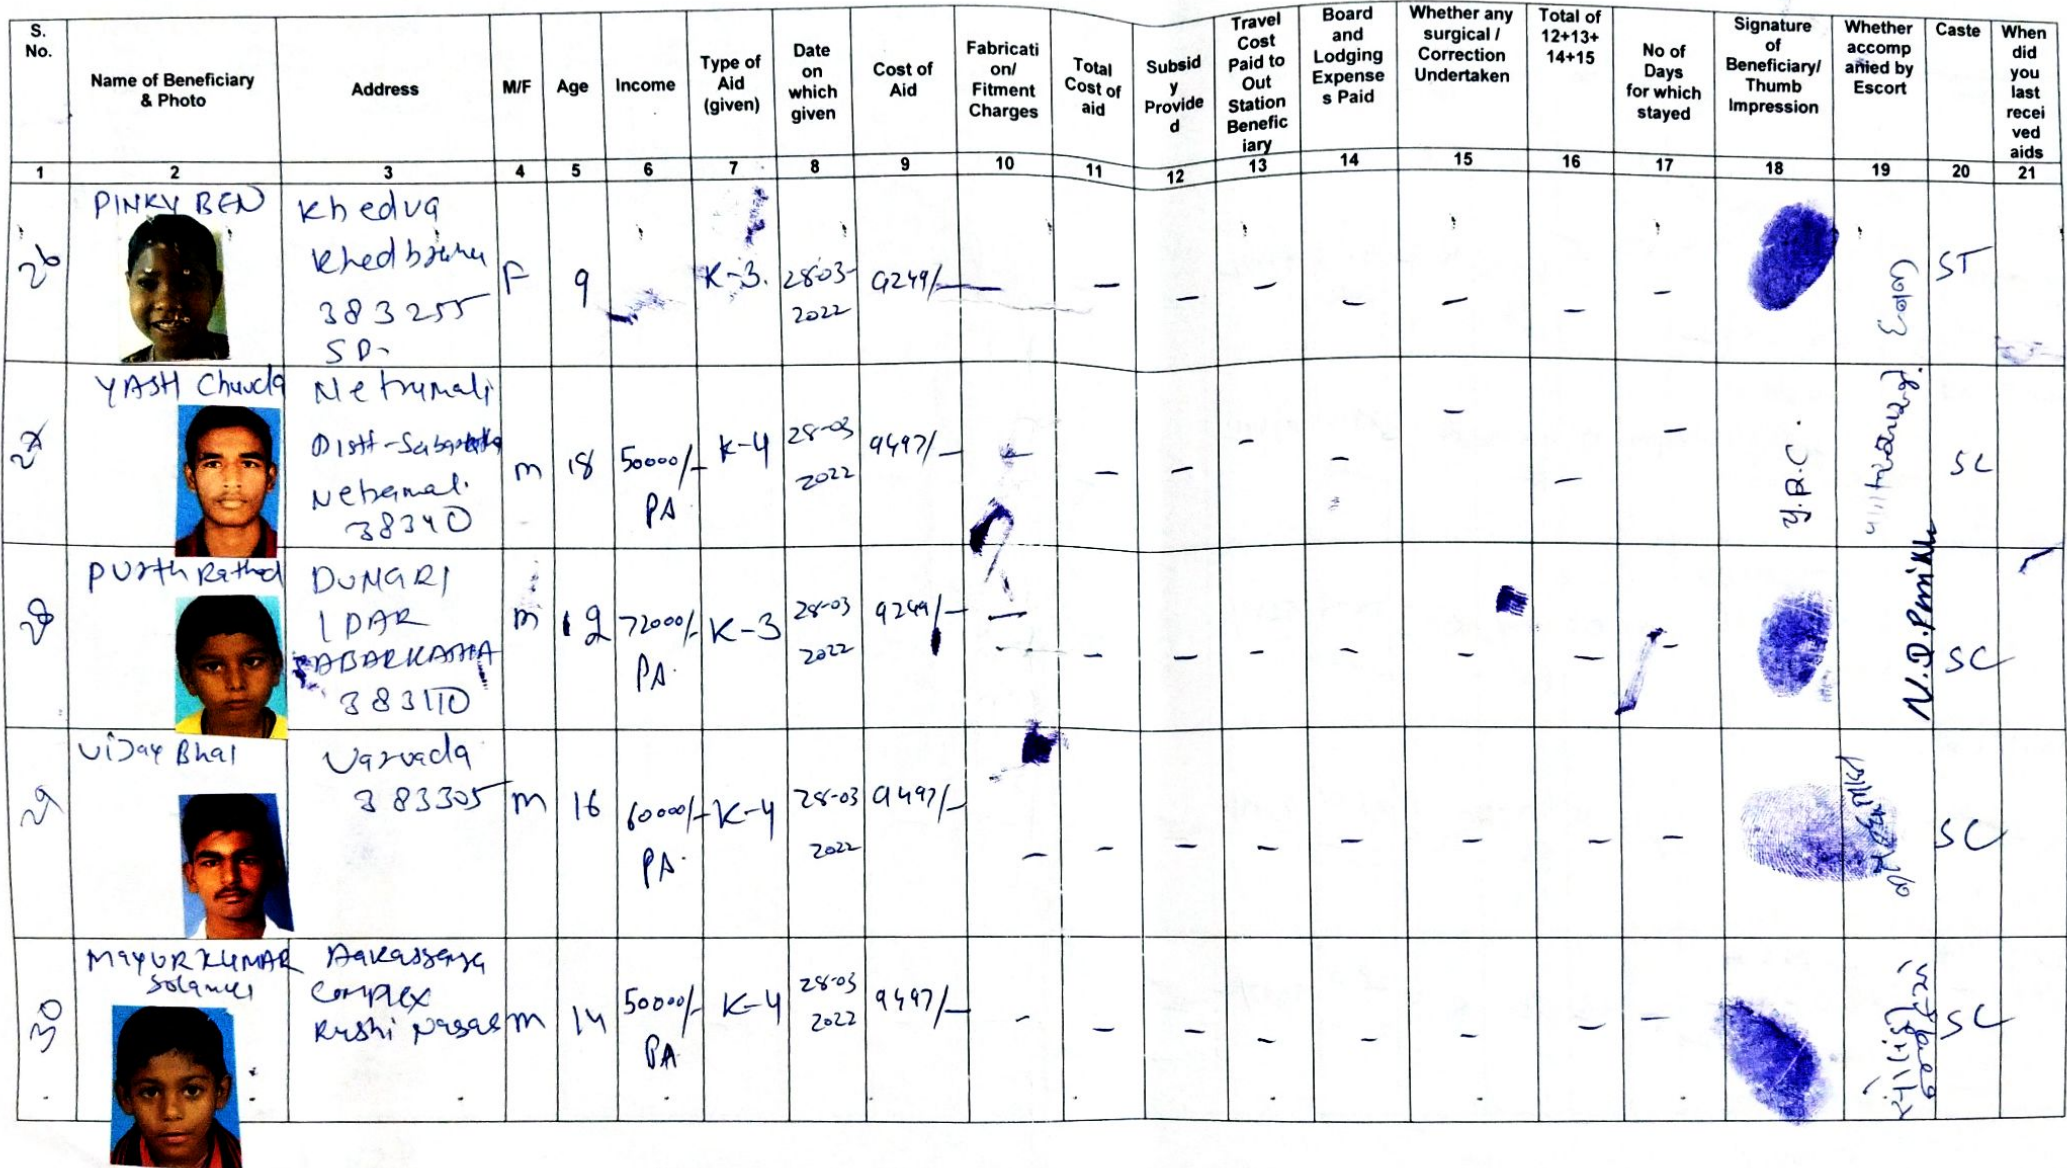 S. No.
Name of Beneficiary & Photo
Address
M/F
Age
Income
Type of Aid (given)
Date on which given
Cost of Aid
Fabricati on/ Fitment Charges
Total Cost of aid
Subsid y Provide d
Travel Cost Paid to Out Station Benefic iary
Board and Lodging Expense s Paid
Whether any surgical / Correction Undertaken
Total of 12+13+ 14+15
No of Days for which stayed
Signature of Beneficiary/ Thumb Impression
Whether accomp anied by Escort
Caste
When did you last recei ved aids
1 2 3 4 5 6 7 8 9 10 11 12 13 14 15 16 17 18 19 20 21
26
PINKY BEN
Khedva
383255
F 9 K-3. 28-03-2022 9249/- ST
27
YASH
Distt-
m 18 50000/- PA K-4 28-03 2022 9497/- Y.B.C. SC
28
Rathod
IDAR
383110
m 12 72000/- PA. K-3 28-03 2022 9249/- SC
29
Vijay Bhai
Varvada
383305
m 16 60000/- PA. K-4 28-03 2022 9497/- SC
30
MAYURKUMAR
Complex
m 14 50000/- PA K-4 28-03 2022 9497/- SC